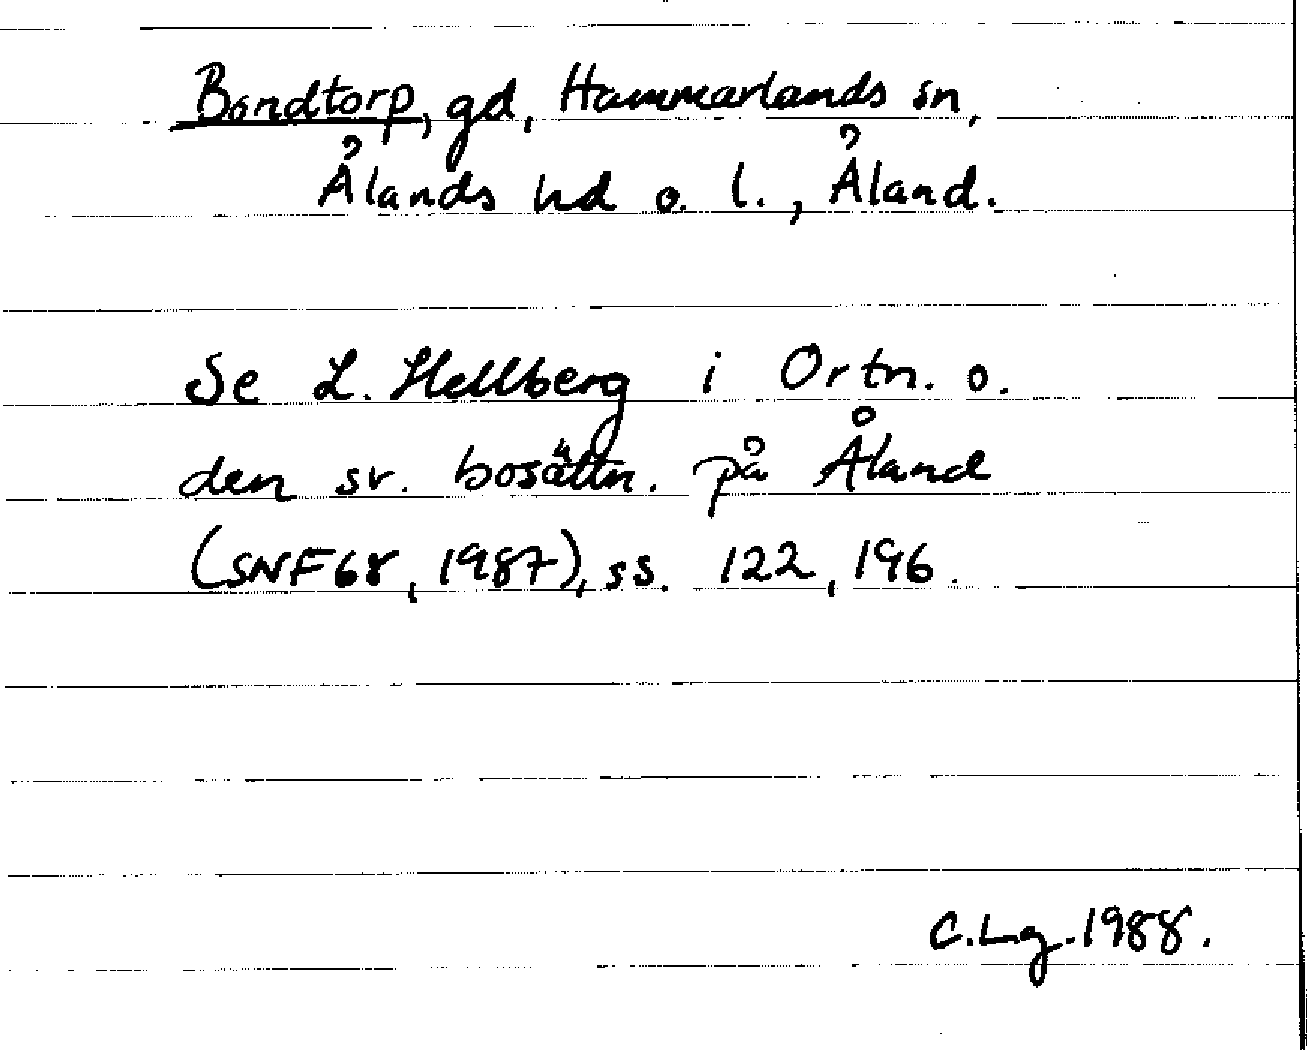 Bondtorp, gd, Hammarlands sn,
Ålands hd o. l., Åland.
Se L. Hellberg i Ortn. o.
den sv. bosättn. på Åland
(SNF68, 1987), ss. 122, 196.
C.Lg. 1988.